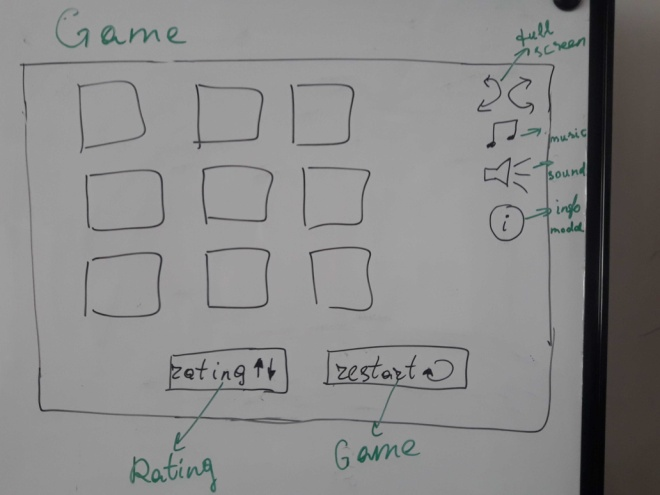 Game
full
screen
music
sound
i
info
modal
rating
restart
Rating
Game